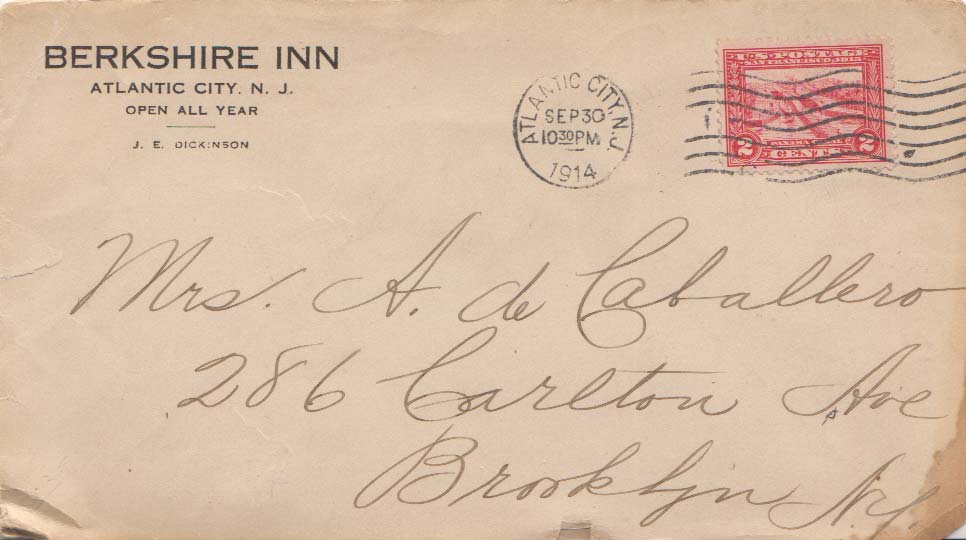 BERKSHIRE INN
ATLANTIC CITY. N. J.
OPEN ALL YEAR
J. E. DICKINSON
ATLANTIC CITY, N.J.
SEP 30
10 30 PM
1914
U.S. POSTAGE
SAN FRANCISCO, 1915
2 CENTS 2
Mrs. A. de Caballero
286 Carlton Ave
Brooklyn N.Y.